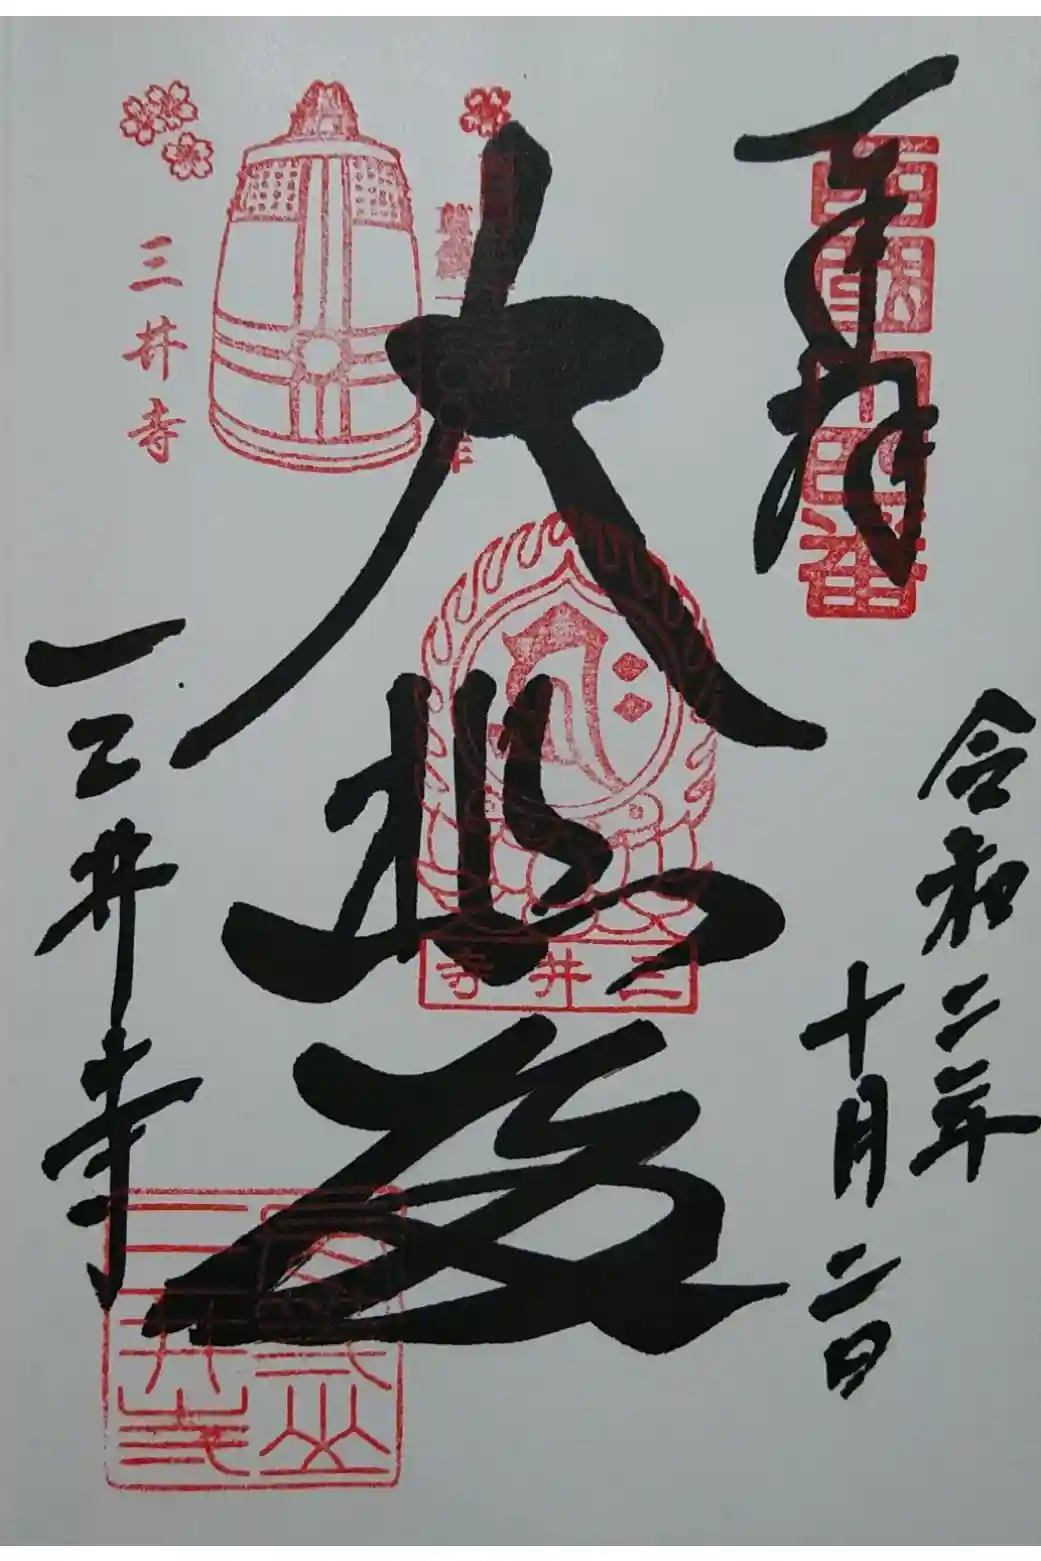 奉拝
西國十四番
令和二年
十月二日
大悲殿
三井寺
三井寺
三井寺
三井寺